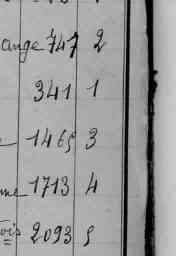 ange 747 2
341 1
1465 3
me 1713 4
ois 2093 5